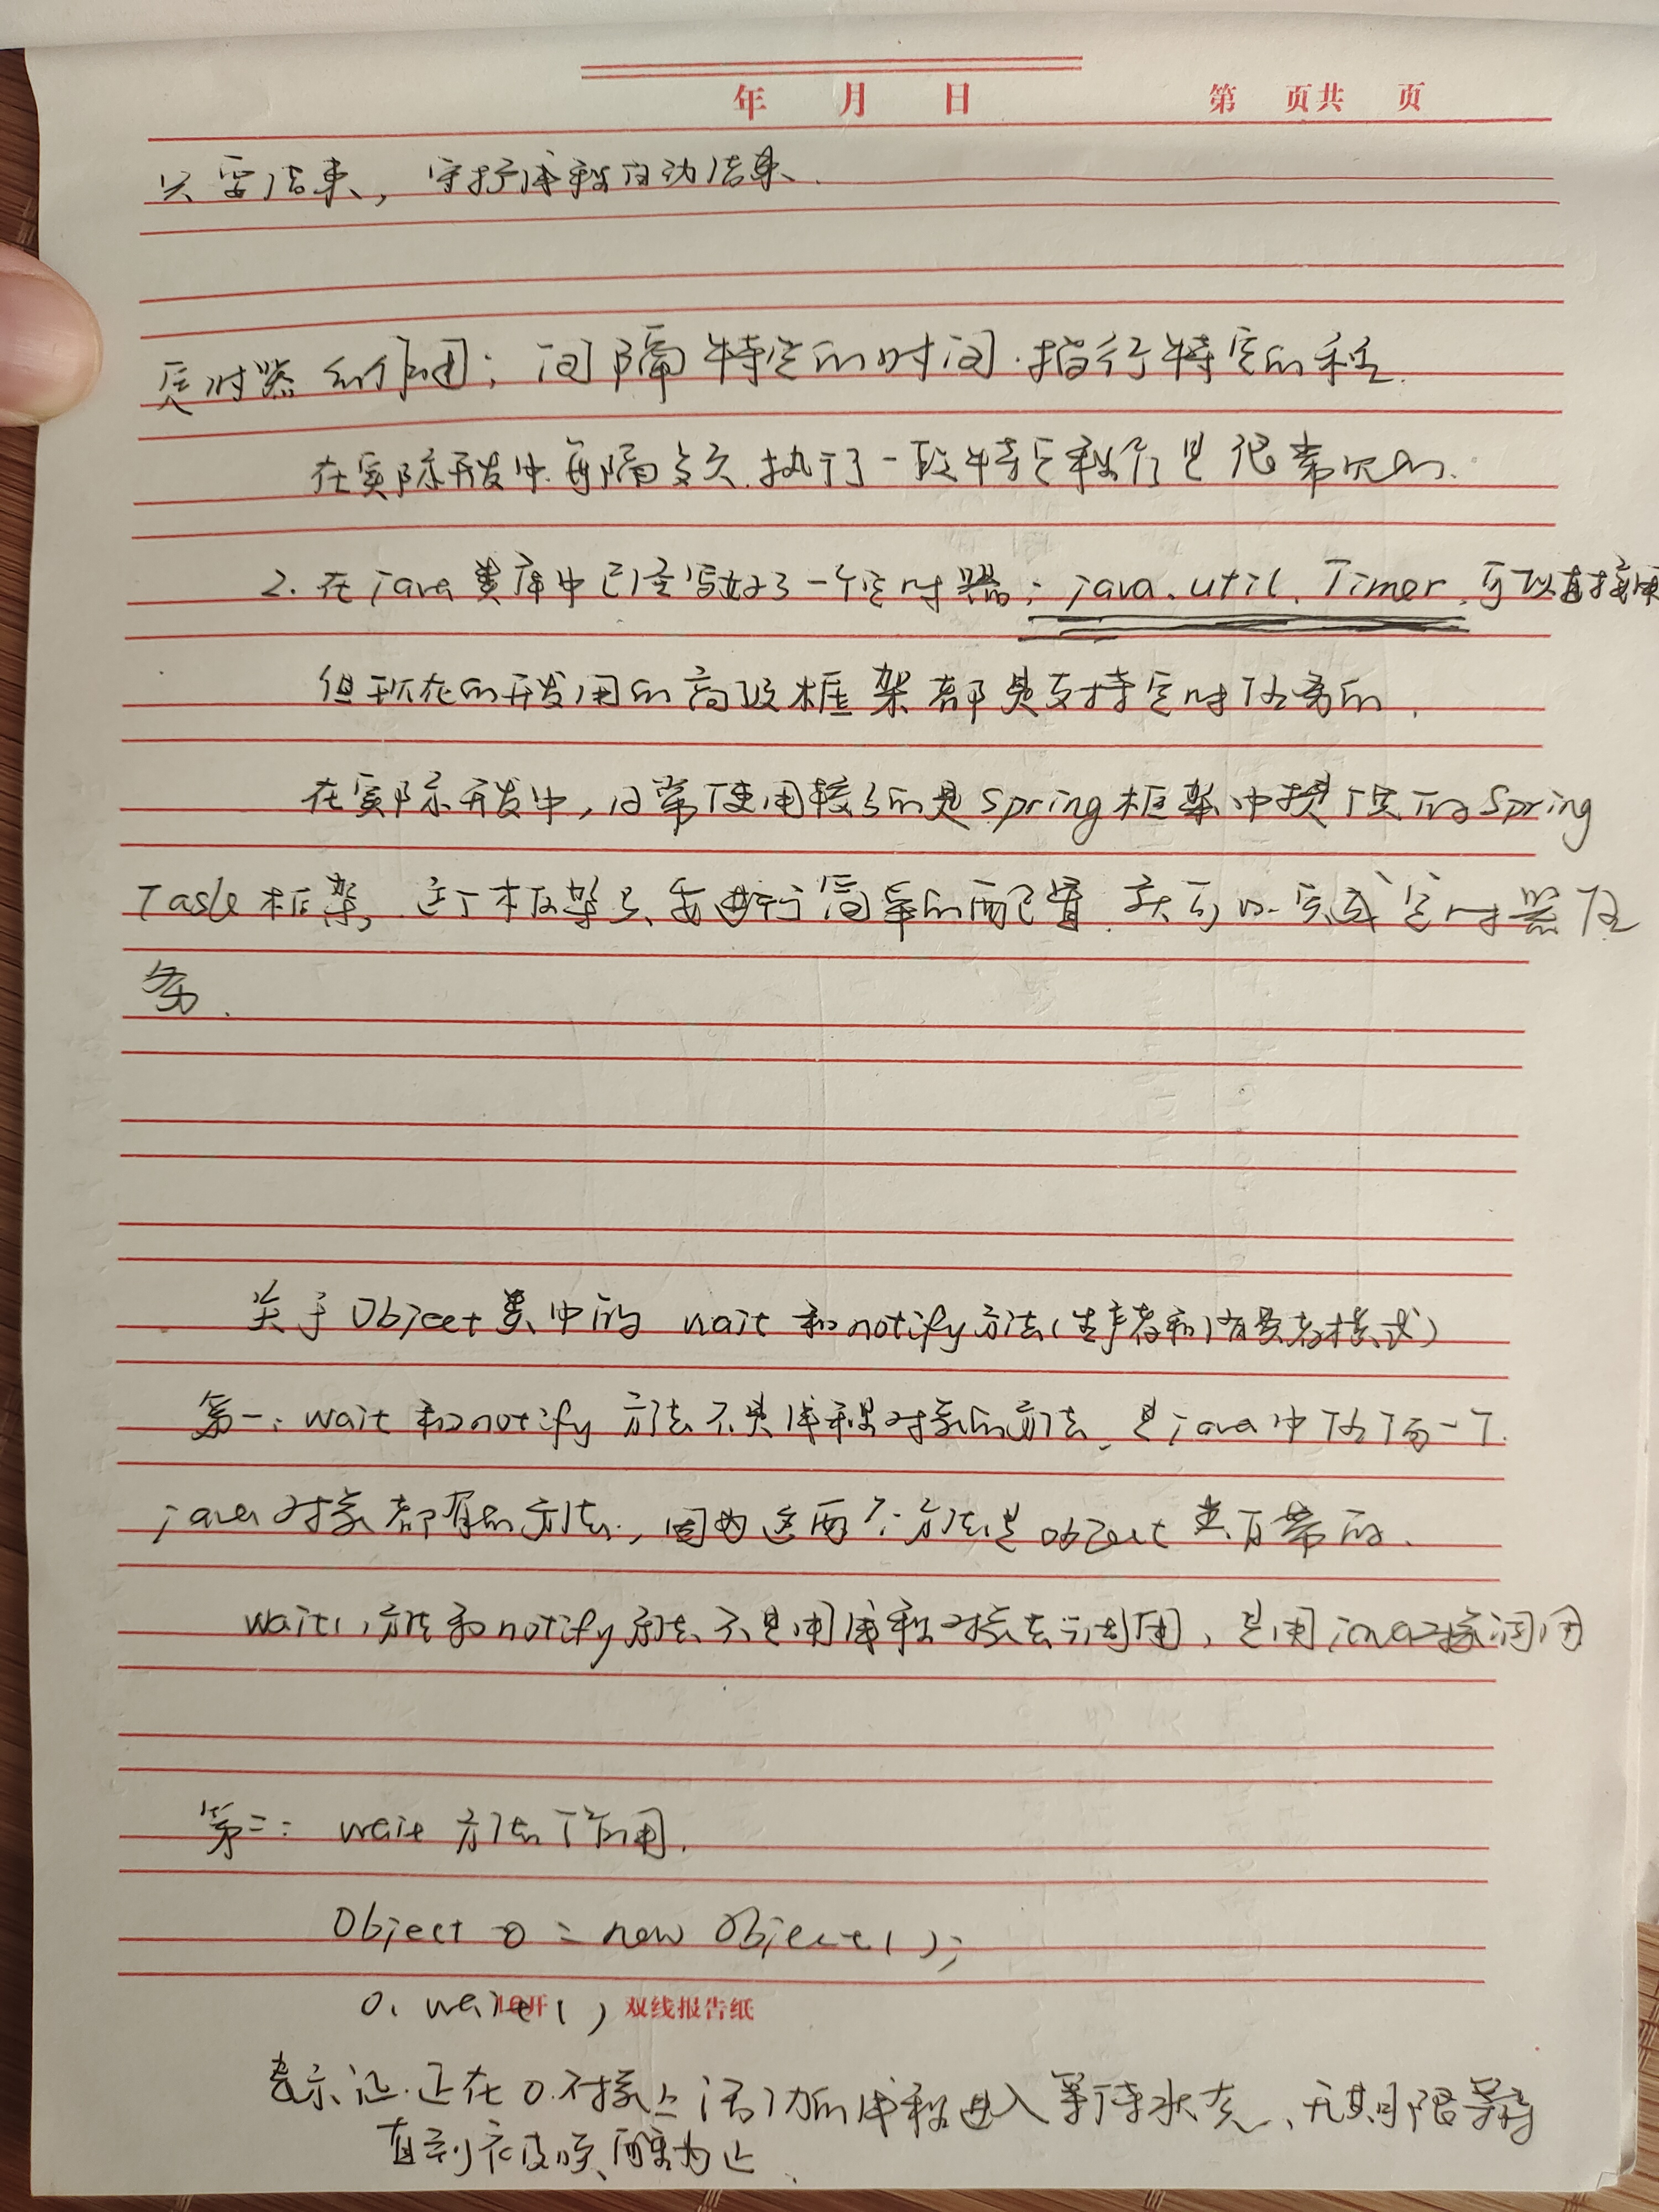 年 月 日 第 页共 页
只要结束，守护线程自动结束.
定时器的作用：间隔特定的时间.执行特定的程.
在实际开发中.每隔多久.执行了一段特定程序是很常见的.
2. 在java类库中已经写好了一个定时器：java.util.Timer.可以直接用
但现在的开发用的高级框架都是支持定时任务的.
在实际开发中，日常使用较多的是Spring框架中提供的Spring
Task框架，这个框架只要进行简单的配置.就可以完成定时器任
务.
关于Object类中的 wait和notify方法(生产者和消费者模式)
第一：wait和notify方法不是线程对象的方法，是java中任何一个
java对象都有的方法，因为这两个方法是object类自带的.
wait()方法和notify方法不是用线程对象去调用，是用java对象调用
第二：wait方法作用.
Object o = new Object();
o.wait()
16开 双线报告纸
表示让.正在o.对象上活动的线程进入等待状态、无期限等待
直到被唤醒为止.